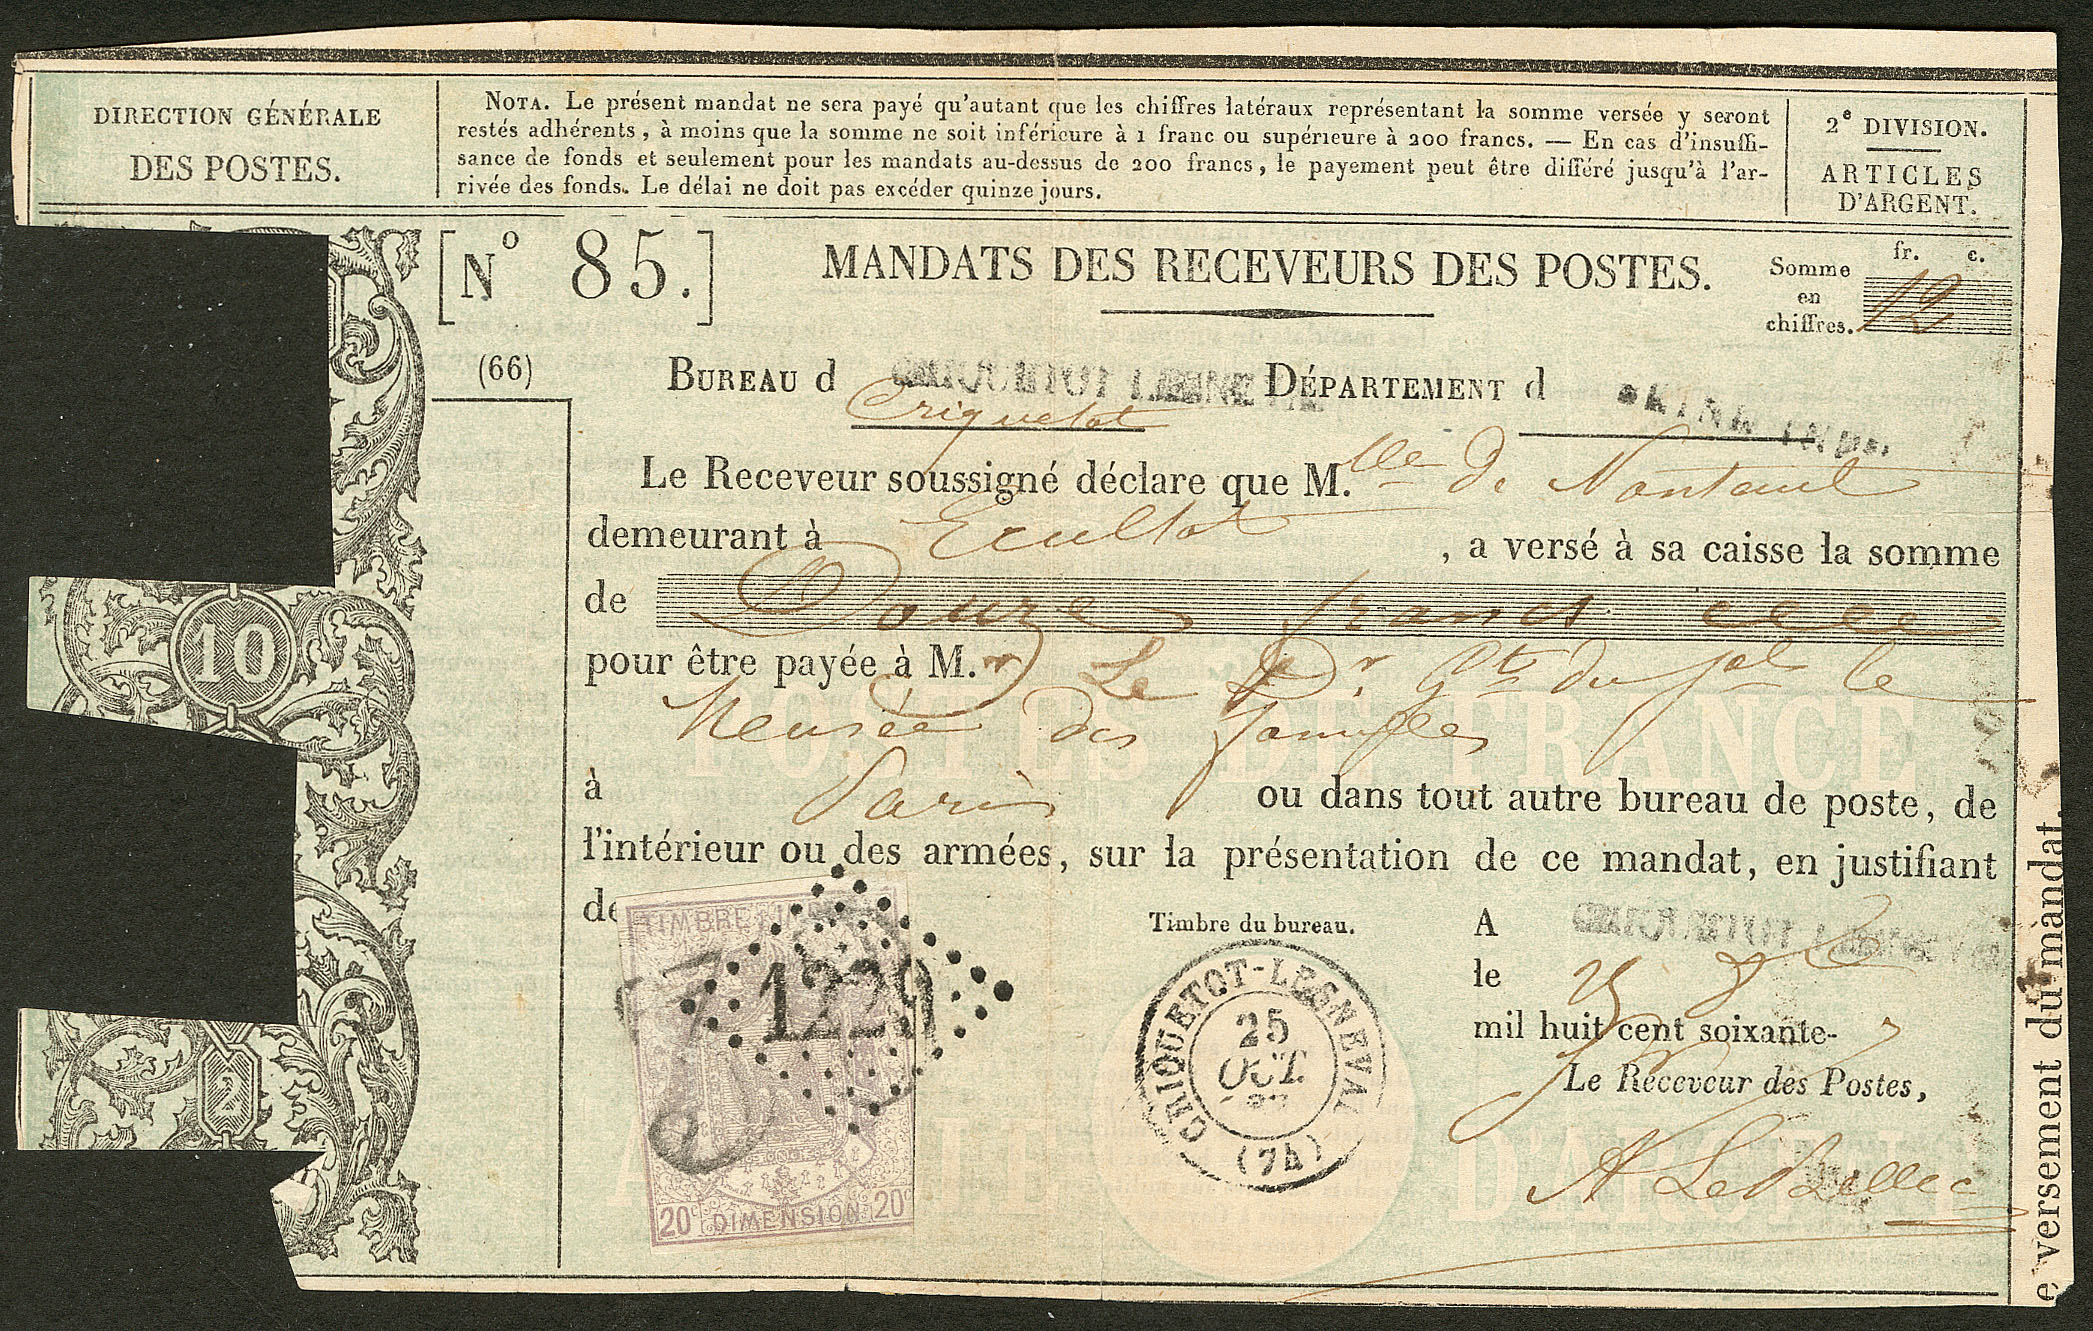 DIRECTION GÉNÉRALE
DES POSTES.
NOTA. Le présent mandat ne sera payé qu'autant que les chiffres latéraux représentant la somme versée y seront
restés adhérents, à moins que la somme ne soit inférieure à 1 franc ou supérieure à 200 francs. — En cas d'insuffi-
sance de fonds et seulement pour les mandats au-dessus de 200 francs, le payement peut être différé jusqu'à l'ar-
rivée des fonds. Le délai ne doit pas excéder quinze jours.
2e DIVISION.
ARTICLES
D'ARGENT.
[No 85.]
MANDATS DES RECEVEURS DES POSTES.
Somme
en
chiffres.
fr. c.
12
(66)
BUREAU d CRIQUETOT LESNEVAL DÉPARTEMENT d
Criquetot
Le Receveur soussigné déclare que M.lle de Nanteuil
demeurant à , a versé à sa caisse la somme
de Douze francs
pour être payée à M.r Le D.r du le
Musée des familles
à Paris ou dans tout autre bureau de poste, de
l'intérieur ou des armées, sur la présentation de ce mandat, en justifiant
de
10
2
TIMBRE
1229
20c DIMENSION 20c
Timbre du bureau.
CRIQUETOT-LESNEVAL
25
OCT.
(74)
A CRIQUETOT LESNEVAL
le 25
mil huit cent soixante-
Le Receveur des Postes,
A LeBellec
POSTES DE FRANCE
e versement du mandat.